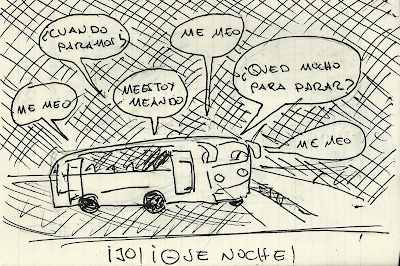 ¿CUANDO
PARAMOS?
ME MEO
ME MEO
MEESTOY
MEANDO
¿QUED MUCHO
PARA PARAR?
ME MEO
¡JO! ¡QUE NOCHE!